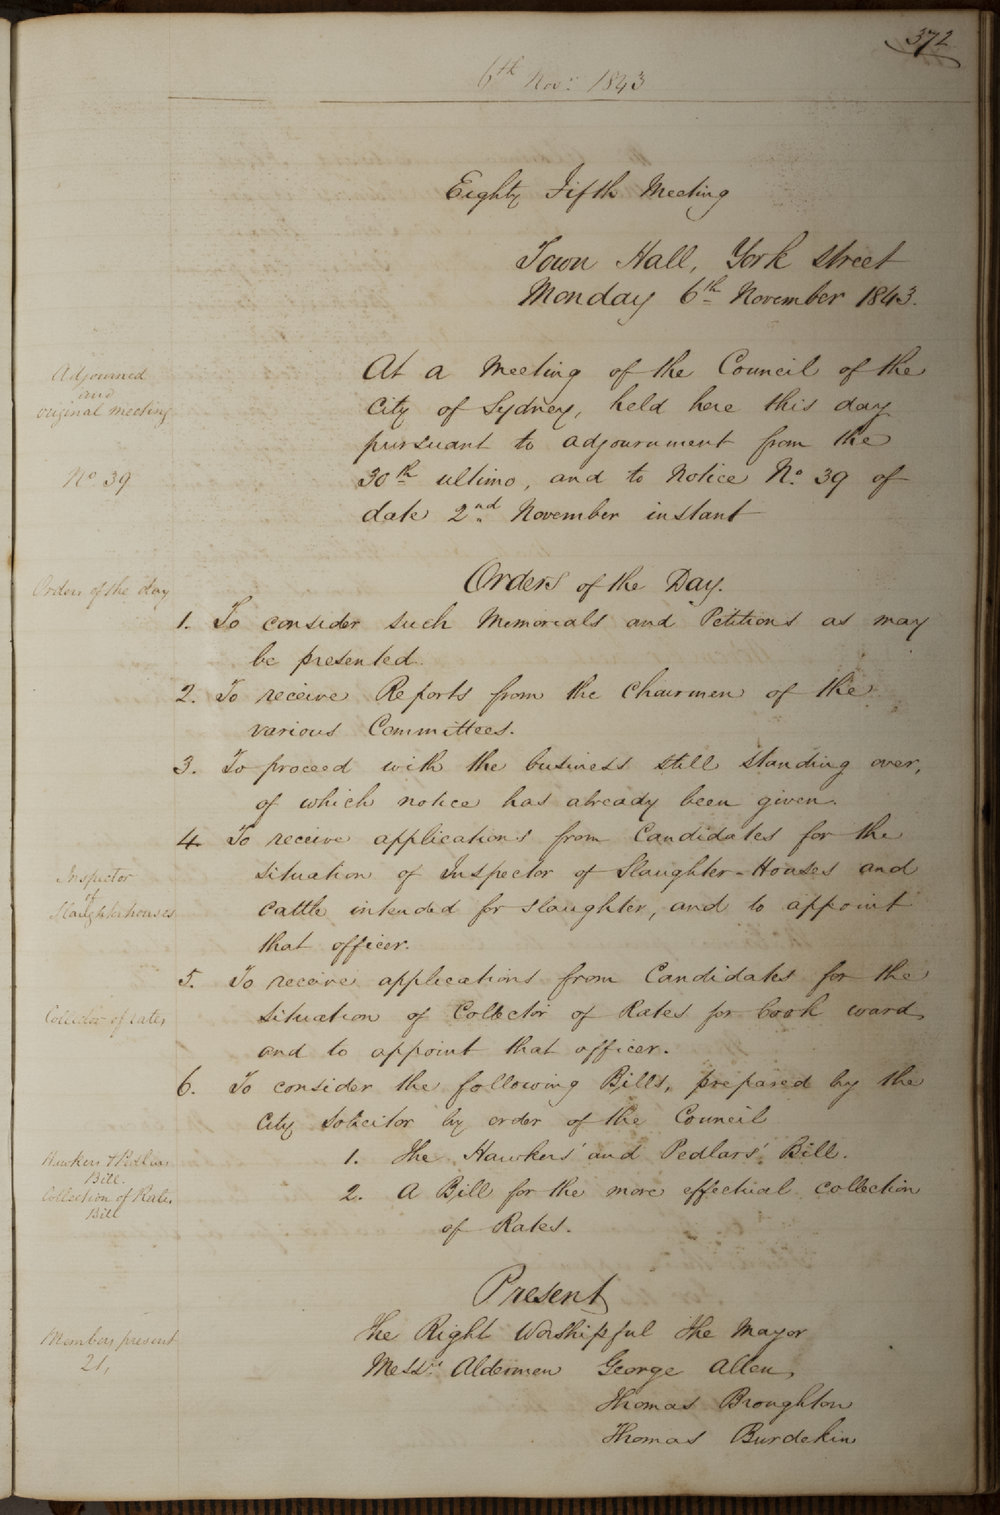 372
6th Nov: 1843
Eighty Fifth Meeting
Town Hall, York Street
Monday 6th November 1843.
Adjourned
and
original meeting
At a Meeting of the Council of the
City of Sydney, held here this day
pursuant to adjournment from the
No 39
30th ultimo, and to Notice No. 39 of
date 2nd November instant
Orders of the day
Orders of the Day.
1. To consider such Memorials and Petitions as may
be presented.
2. To receive Reports from the Chairmen of the
various Committees.
3. To proceed with the business still standing over,
of which notice has already been given.
4. To receive applications from Candidates for the
Inspector
of
Slaughterhouses
situation of Inspector of Slaughter-Houses and
Cattle intended for slaughter, and to appoint
that officer.
5. To receive applications from Candidates for the
Collector of rates
situation of Collector of Rates for Cook ward
and to appoint that officer.
6. To consider the following Bills, prepared by the
City Solicitor by order of the Council
Hawkers & Pedlars
Bill.
1. The Hawkers' and Pedlars' Bill.
Collection of Rates
Bill
2. A Bill for the more effectual collection
of Rates.
Present
Members present
21,
The Right Worshipful the Mayor
Messrs Aldermen George Allen,
Thomas Broughton
Thomas Burdekin